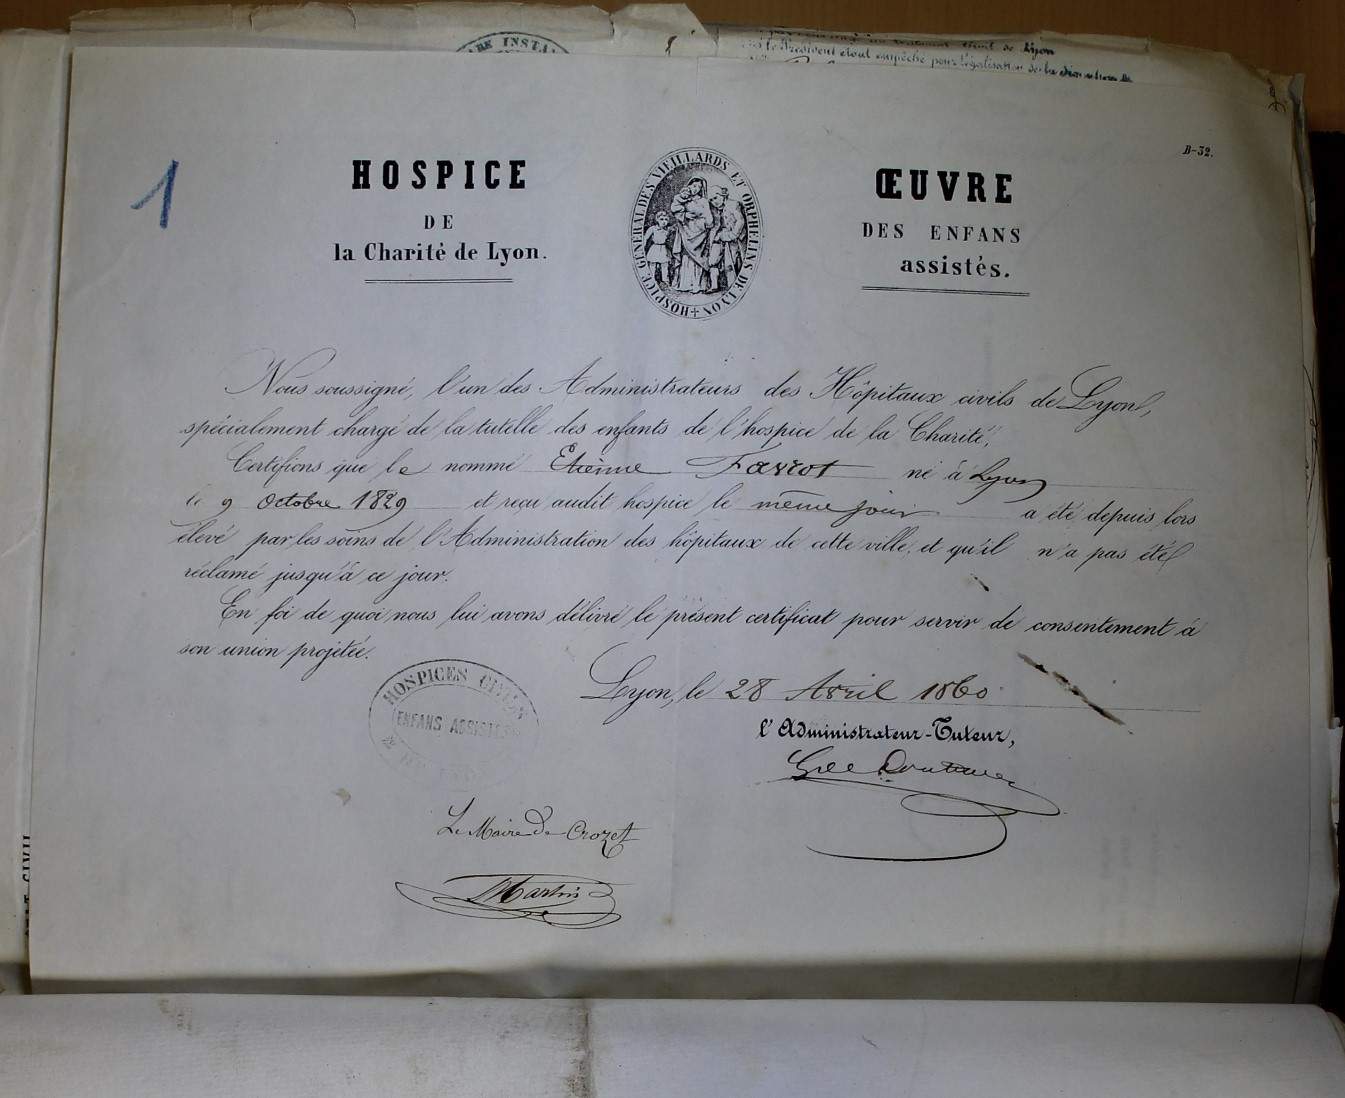 1
B-32.
HOSPICE
DE
la Charité de Lyon.
HOSPICE GENERAL DES VIEILLARDS ET ORPHELINS DE LYON
ŒUVRE
DES ENFANS
assistés.
Nous soussigné, l'un des Administrateurs des Hôpitaux civils de Lyon,
spécialement chargé de la tutelle des enfants de l'hospice de la Charité,
Certifions que le nommé Etienne Favrot né à Lyon
le 9 Octobre 1829 et reçu audit hospice le même jour a été depuis lors
élevé par les soins de l'Administration des hôpitaux de cette ville, et qu'il n'a pas été
réclamé jusqu'à ce jour.
En foi de quoi nous lui avons délivré le présent certificat pour servir de consentement à
son union projetée.
Lyon, le 28 Avril 1860.
HOSPICES CIVILS
ENFANS ASSISTES
l'Administrateur-Tuteur,
Le Maire De Crozet
Martin